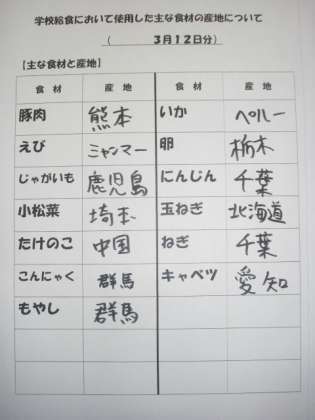 学校給食において使用した主な食材の産地について
（　3月12日分）
【主な食材と産地】
食　材　産　地　食　材　産　地
豚肉　熊本　いか　ペルー
えび　ミャンマー　卵　栃木
じゃがいも　鹿児島　にんじん　千葉
小松菜　埼玉　玉ねぎ　北海道
たけのこ　中国　ねぎ　千葉
こんにゃく　群馬　キャベツ　愛知
もやし　群馬